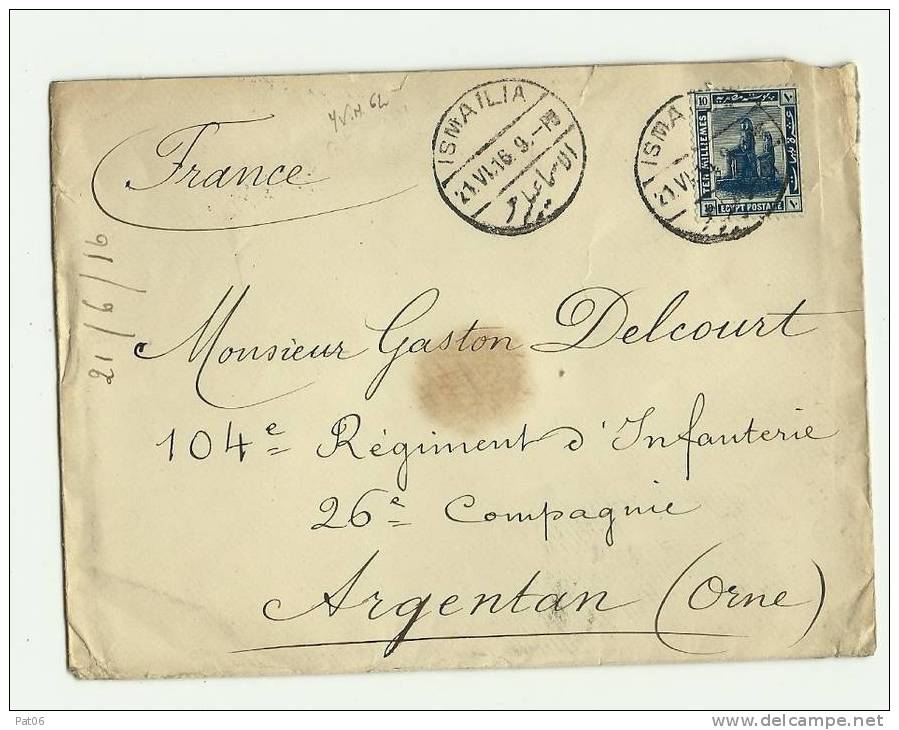 ISMAÏLIA
21.VI.16.9.-
الاسماعيلية
ISMA
21.VI
10
١٠
TEN MILLIEMES
10
EGYPT POSTAGE
١٠
France
21/6/16
Monsieur Gaston Delcourt
104e Régiment d'Infanterie
26e Compagnie
Argentan (Orne)
Pat06
http://www.delcampe.net